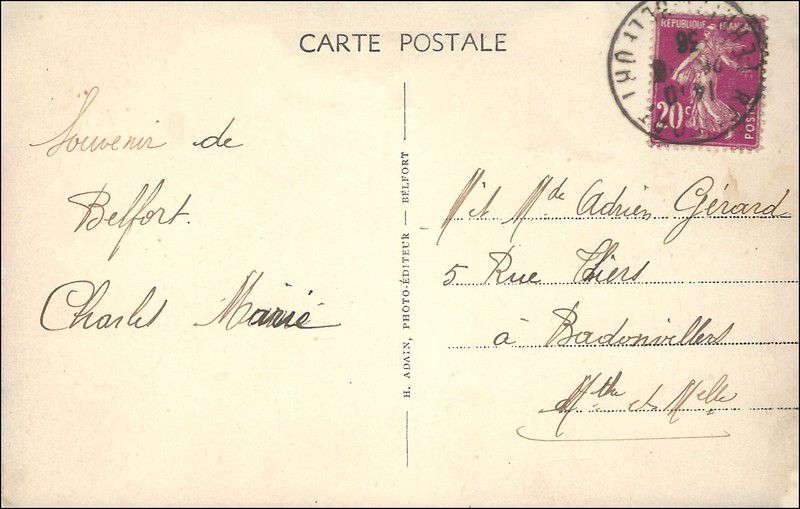 CARTE POSTALE
Souvenir de
Belfort.
Charles Marié
H. ADAIN, PHOTO-ÉDITEUR — BELFORT
RÉPUBLIQUE FRANÇAISE
20c
POSTES
38
14 10
M. et Mde Adrien Gérard
5 Rue Thiers
à Badonvillers
Mthe et Melle